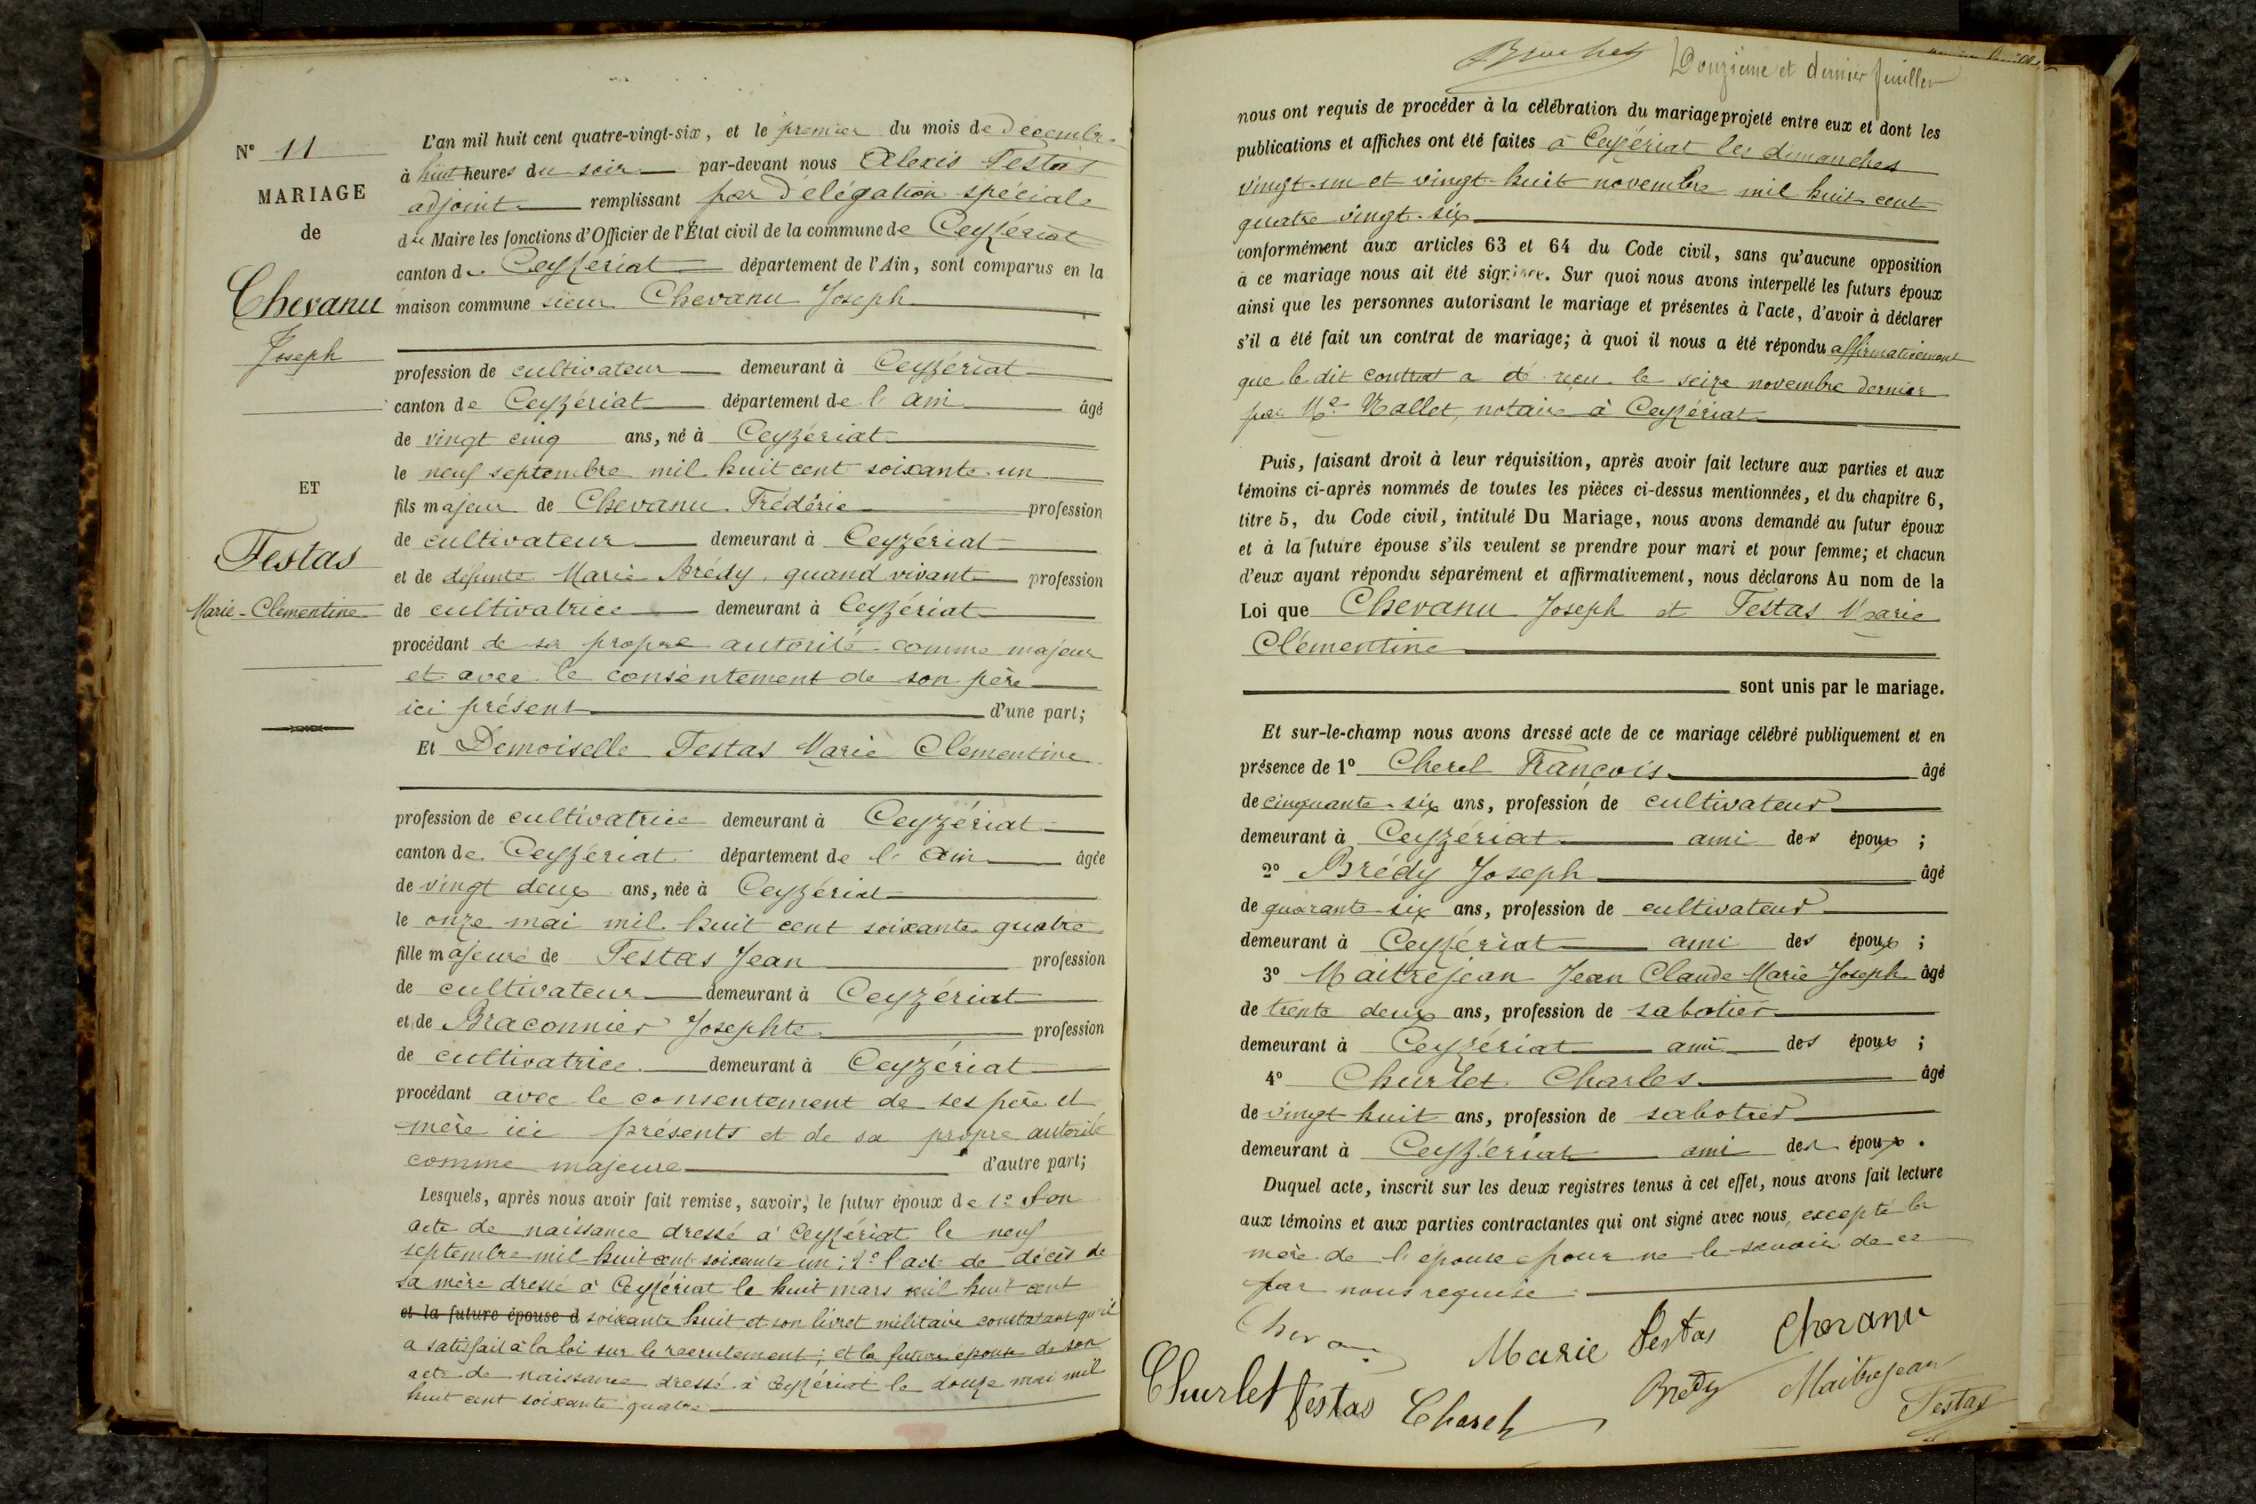 N° 11
MARIAGE
de
Chevanu
Joseph
ET
Festas
Marie-Clementine
L'an mil huit cent quatre-vingt-six, et le premier du mois de Decembre
à huit heures du soir par-devant nous Alexis Festas
adjoint remplissant par Délégation spéciale
du Maire les fonctions d'Officier de l'État civil de la commune de Ceyzériat
canton de Ceyzériat département de l'Ain, sont comparus en la
maison commune sieur Chevanu Joseph
profession de cultivateur demeurant à Ceyzériat
canton de Ceyzériat département de l'ain âgé
de vingt cinq ans, né à Ceyzériat
le neuf septembre mil huit cent soixante un
fils majeur de Chevanu Frédéric profession
de cultivateur demeurant à Ceyzériat
et de défunte Marie Brédy, quand vivant profession
de cultivatrice demeurant à Ceyzériat
procédant de sa propre autorité comme majeur
et avec le consentement de son père
ici présent d'une part;
Et Demoiselle Festas Marie Clémentine
profession de cultivatrice demeurant à Ceyzériat
canton de Ceyzériat département de l'ain âgée
de vingt deux ans, née à Ceyzériat
le onze mai mil huit cent soixante quatre
fille majeure de Festas Jean profession
de cultivateur demeurant à Ceyzériat
et de Braconnier Josephte profession
de cultivatrice demeurant à Ceyzériat
procédant avec le consentement de ses père et
mère ici présents et de sa propre autorité
comme majeure d'autre part;
Lesquels, après nous avoir fait remise, savoir, le futur époux de 1° Son
acte de naissance dressé à Ceyzériat le neuf
septembre mil huit cent soixante un; 2° l'acte de décès de
sa mère dressé à Ceyzériat le huit mars mil huit cent
et la future épouse d soixante huit et son livret militaire constatant qu'il
a satisfait à la loi sur le recrutement; et la future épouse de son
acte de naissance dressé à Ceyzériat le douze mai mil
huit cent soixante quatre
Douzième et dernier feuillet
nous ont requis de procéder à la célébration du mariage projeté entre eux et dont les
publications et affiches ont été faites à Ceyzériat les dimanches
vingt-un et vingt-huit novembre mil huit cent
quatre vingt-six
conformément aux articles 63 et 64 du Code civil, sans qu'aucune opposition
à ce mariage nous ait été signifiée. Sur quoi nous avons interpellé les futurs époux
ainsi que les personnes autorisant le mariage et présentes à l'acte, d'avoir à déclarer
s'il a été fait un contrat de mariage; à quoi il nous a été répondu affirmativement
que le dit contrat a été reçu le seize novembre dernier
par Me Mallet, notaire à Ceyzériat
Puis, faisant droit à leur réquisition, après avoir fait lecture aux parties et aux
témoins ci-après nommés de toutes les pièces ci-dessus mentionnées, et du chapitre 6,
titre 5, du Code civil, intitulé Du Mariage, nous avons demandé au futur époux
et à la future épouse s'ils veulent se prendre pour mari et pour femme; et chacun
d'eux ayant répondu séparément et affirmativement, nous déclarons Au nom de la
Loi que Chevanu Joseph et Festas Marie
Clémentine
sont unis par le mariage.
Et sur-le-champ nous avons dressé acte de ce mariage célébré publiquement et en
présence de 1° Cherel François âgé
de cinquante-six ans, profession de cultivateur
demeurant à Ceyzériat ami des époux ;
2° Brédy Joseph âgé
de quarante-six ans, profession de cultivateur
demeurant à Ceyzériat ami des époux ;
3° Maitrejean Jean Claude Marie Joseph âgé
de trente deux ans, profession de sabotier
demeurant à Ceyzériat ami des époux ;
4° Churlet Charles âgé
de vingt huit ans, profession de sabotier
demeurant à Ceyzériat ami des époux.
Duquel acte, inscrit sur les deux registres tenus à cet effet, nous avons fait lecture
aux témoins et aux parties contractantes qui ont signé avec nous, excepté la
mère de l'épouse pour ne le savoir de ce
par nous requise.
Marie Festas Chevanu
Churlet Festas Cherel Bredy Maitrejean
Festas